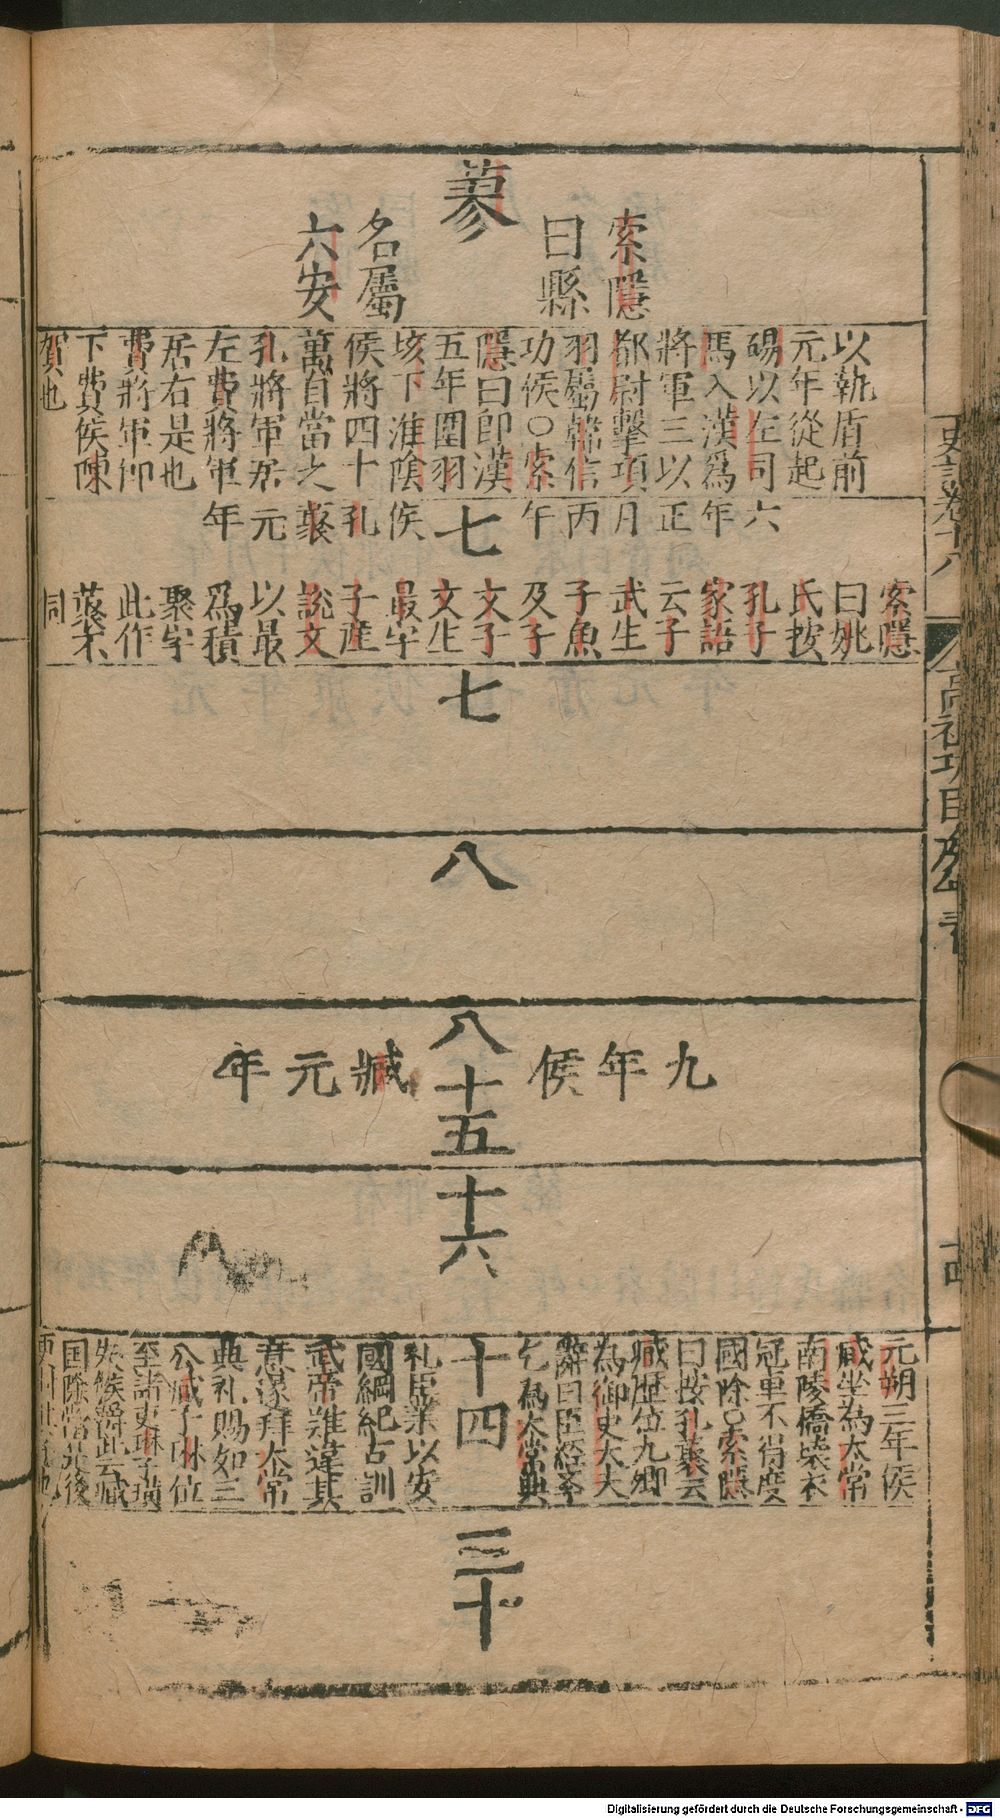 蓼
索隱
曰縣
名屬
六安
以執盾前
元年從起
碭以左司
馬入漢爲
將軍三以
都尉擊項
羽屬韓信
功侯○索
隱曰即漢
五年圍羽
垓下淮陰
侯將四十
萬自當之
孔將軍居
左費將軍
居右是也
費將軍即
下費侯陳
賀也
六
年
正
月
丙
午
七
侯
孔
藂
元
年
索隱
曰姚
氏按
孔子
家語
云子
武生
子魚
及子
文子
文生
最字
子產
說文
以最
爲積
聚字
此作
藂不
同
七
八
八
九年侯
臧元年
十五
十六
元朔三年侯
臧坐為太常
南陵橋壞衣
冠車不得度
國除○索隱
曰按孔藂云
臧歷位九卿
為御史大夫
辭曰臣經學
乞為太常典
十四
礼臣業以安
國綱紀古訓
武帝難違其
意遂拜太常
典礼賜如三
公臧子琳位
至諸吏琳子璜
失侯爵此云臧
国除當是後
三十
史記卷十八
高祖功臣年表
Digitalisierung gefördert durch die Deutsche Forschungsgemeinschaft - DFG